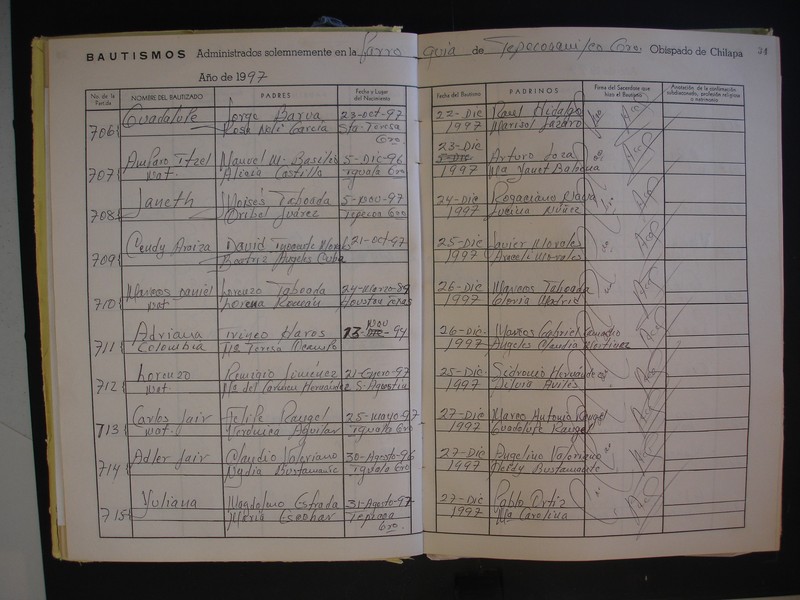 BAUTISMOS Administrados solemnemente en la Parro quia de Tepecoacuilco Gro. Obispado de Chilapa
Año de 1997
No. de la Partida NOMBRE DEL BAUTIZADO PADRES Fecha y Lugar del Nacimiento Fecha del Bautismo PADRINOS Firma del Sacerdote que hizo el Bautismo Anotación de la confirmación subdiaconado, profesión religiosa o matrimonio
706 Guadalupe Jorge 23-Oct-97 22-Dic Raul Hidalgo
Rosa García Sta. Teresa 1997 Marisol Lázaro
Gro.
23-Dic
Amparo Itzel Manuel M. Basilio 5-Dic-96 Arturo
707 nat. Alicia Castillo Iguala Gro 1997 Ma Janet
Janeth Moisés Taboada 5-Nov-97 24-Dic Rogaciano
708 Oribel Juárez Tepecoa Gro 1997 Lucina Núñez
Cendy Araiza David 21-Oct-97 25-Dic Javier Morales
709 Beatriz Angeles 1997 Araceli Morales
Marcos Daniel Lorenzo Taboada 24-Marzo-89 26-Dic Marcos Taboada
710 nat Lorena Román Houston Texas 1997 Gloria Madrid
Nov
Adriana Ireneo Haros 13- -94 26-Dic Marcos Gabriel
711 Colombia Ma Teresa 1997 Angeles Claudia Martinez
Lorenzo Remigio Jimenez 21-Enero-97 25-Dic Sidronio Hernandez
712 nat. Ma del Carmen Hernández S. Agustin 1997 Silvia Aviles
Carlos Jair Felipe Rangel 25-mayo-97 27-Dic Marco Antonio Rangel
713 nat. Veronica Aguilar Iguala Gro 1997 Guadalupe Rangel
Adler Jair Claudio Valeriano 30-Agosto-96 27-Dic Angelino Valeriano
714 Nydia Bustamante Iguala Gro 1997 Bustamante
Yuliana Magdaleno Estrada 31-Agosto-97 27-Dic Pablo Ortiz
715 Maria Escobar Tepecoa 1997 Ma Carolina
Gro.